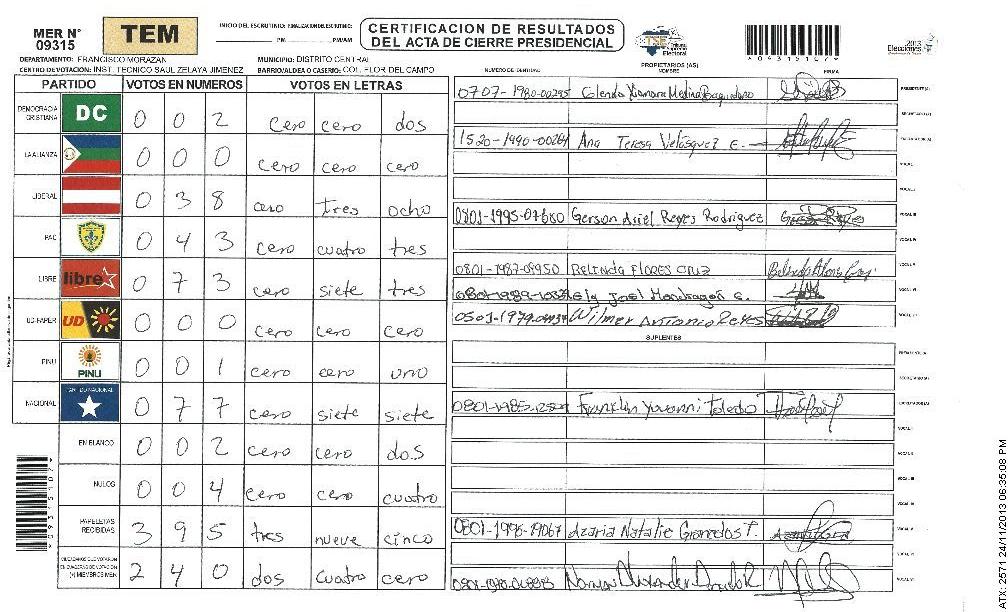 MER N° 09315
TEM
INICIO DEL ESCRUTINIO: FINALIZACION DEL ESCRUTINIO:
PM PM/AM
CERTIFICACION DE RESULTADOS
DEL ACTA DE CIERRE PRESIDENCIAL
TSE Tribunal Supremo Electoral
*09315107*
2013 Elecciones
DEPARTAMENTO: FRANCISCO MORAZAN MUNICIPIO: DISTRITO CENTRAL
CENTRO DE VOTACIÓN: INST. TECNICO SAUL ZELAYA JIMENEZ BARRIO/ALDEA O CASERIO: COL. FLOR DEL CAMPO
NUMERO DE IDENTIDAD PROPIETARIOS (AS) NOMBRE FIRMA
PARTIDO VOTOS EN NUMEROS VOTOS EN LETRAS
DEMOCRACIA CRISTIANA DC 0 0 2 cero cero dos
LA ALIANZA 0 0 0 cero cero cero
LIBERAL 0 3 8 cero tres ocho
PAC 0 4 3 cero cuatro tres
LIBRE libre 0 7 3 cero siete tres
UD-FAPER UD 0 0 0 cero cero cero
PINU PINU 0 0 1 cero cero uno
NACIONAL PARTIDO NACIONAL 0 7 7 cero siete siete
EN BLANCO 0 0 2 cero cero dos
NULOS 0 0 4 cero cero cuatro
PAPELETAS RECIBIDAS 3 9 5 tres nueve cinco
CIUDADANOS QUE VOTARON EN CUADERNO DE VOTACIÓN (+) MIEMBROS MER 2 4 0 dos cuatro cero
0707-1980-00295 Medina PRESIDENTE (A)
SECRETARIO (A)
1520-1990-00264 Ana Teresa Velásquez E. ESCRUTADOR (A)
VOCAL I
VOCAL II
0801-1995-07680 Gerson Ariel Reyes Rodriguez VOCAL III
VOCAL IV
0801-1987-09950 BELINDA FLORES CRUZ VOCAL V
Joel Mondragón VOCAL VI
Wilmer Antonio Reyes VOCAL VII
SUPLENTES
PRESIDENTE (A)
SECRETARIO (A)
Franklin Yovanni Toledo ESCRUTADOR (A)
VOCAL I
VOCAL II
VOCAL III
VOCAL IV
Azaria Natalie Granados F. VOCAL V
VOCAL VI
VOCAL VII
*09315107*
ATX-2571 24/11/2013 06:35:08 PM